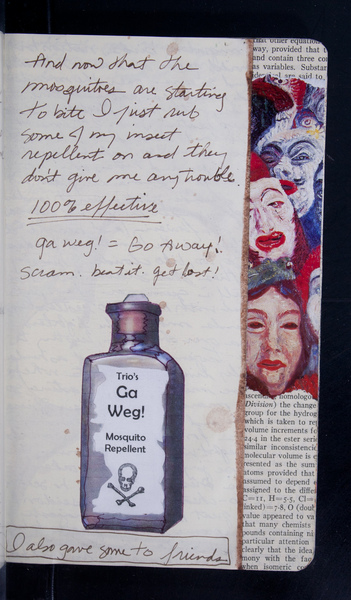 And now that the
mosquitoes are starting
to bite I just rub
some of my insect
repellent on and they
don't give me any trouble.
100% effective
ga weg! = Go Away!
Scram. beat it. get lost!
Trio's
Ga
Weg!
Mosquito
Repellent
I also gave some to friends
that other equation
way, provided that t
and contain three co
as variables. Substan
are said to
ascen homologo
Division) the change
group for the hydrog
which is taken to re
volume increments fo
244 in the ester serie
similar inconsistenci
molecular volume is e
resented as the sum
atoms provided that
assumed to depend
assigned to the diffe
C=11, H=5·5, Cl=
linked)=7·8, O (doub
value appeared to va
that many chemists
pounds containing ni
particular attention
clearly that the idea
mony with the fac
when isomeric co